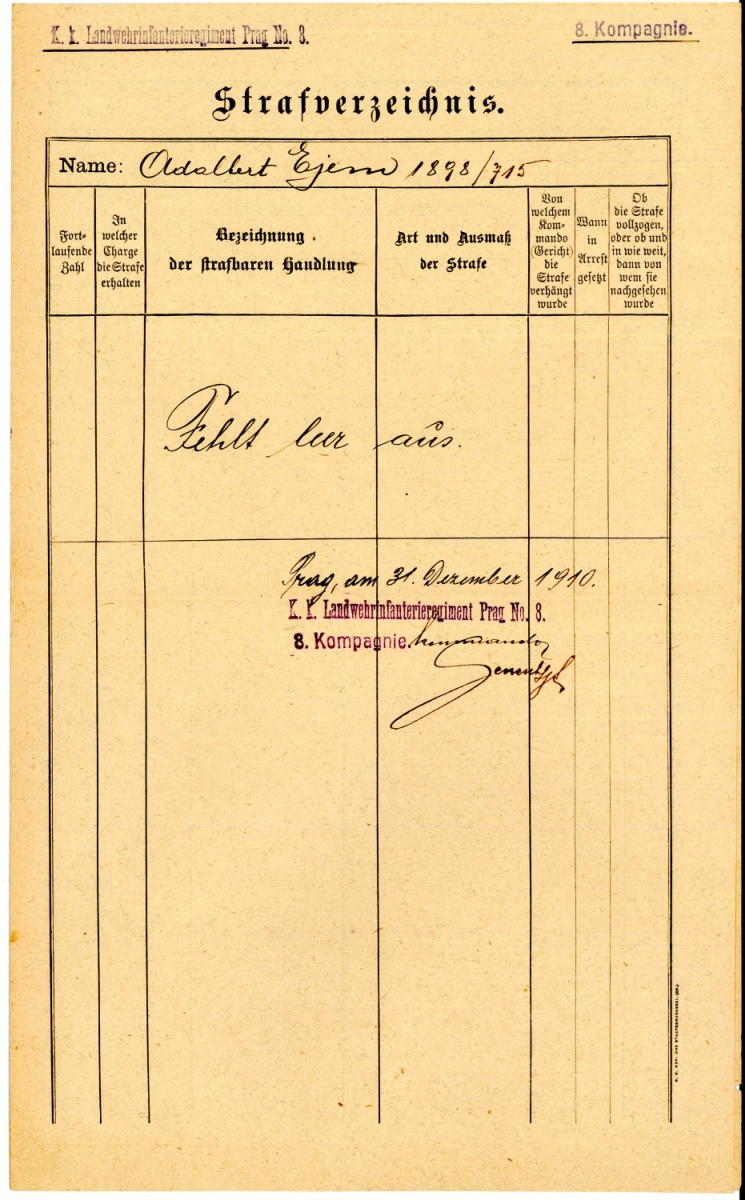 K. k. Landwehrinfanterieregiment Prag No. 8.
8. Kompagnie.
Strafverzeichnis.
Name: Adalbert Ejem 1898/715
Fort-
laufende
Zahl
In
welcher
Charge
die Strafe
erhalten
Bezeichnung
der strafbaren Handlung
Art und Ausmaß
der Strafe
Von
welchem
Kom-
mando
(Gericht)
die
Strafe
verhängt
wurde
Wann
in
Arrest
gesetzt
Ob
die Strafe
vollzogen,
oder ob und
in wie weit,
dann von
wem sie
nachgesehen
wurde
Fehlt leer aus.
Prag, am 31. Dezember 1910.
K. k. Landwehrinfanterieregiment Prag No. 8.
8. Kompagnie kommando